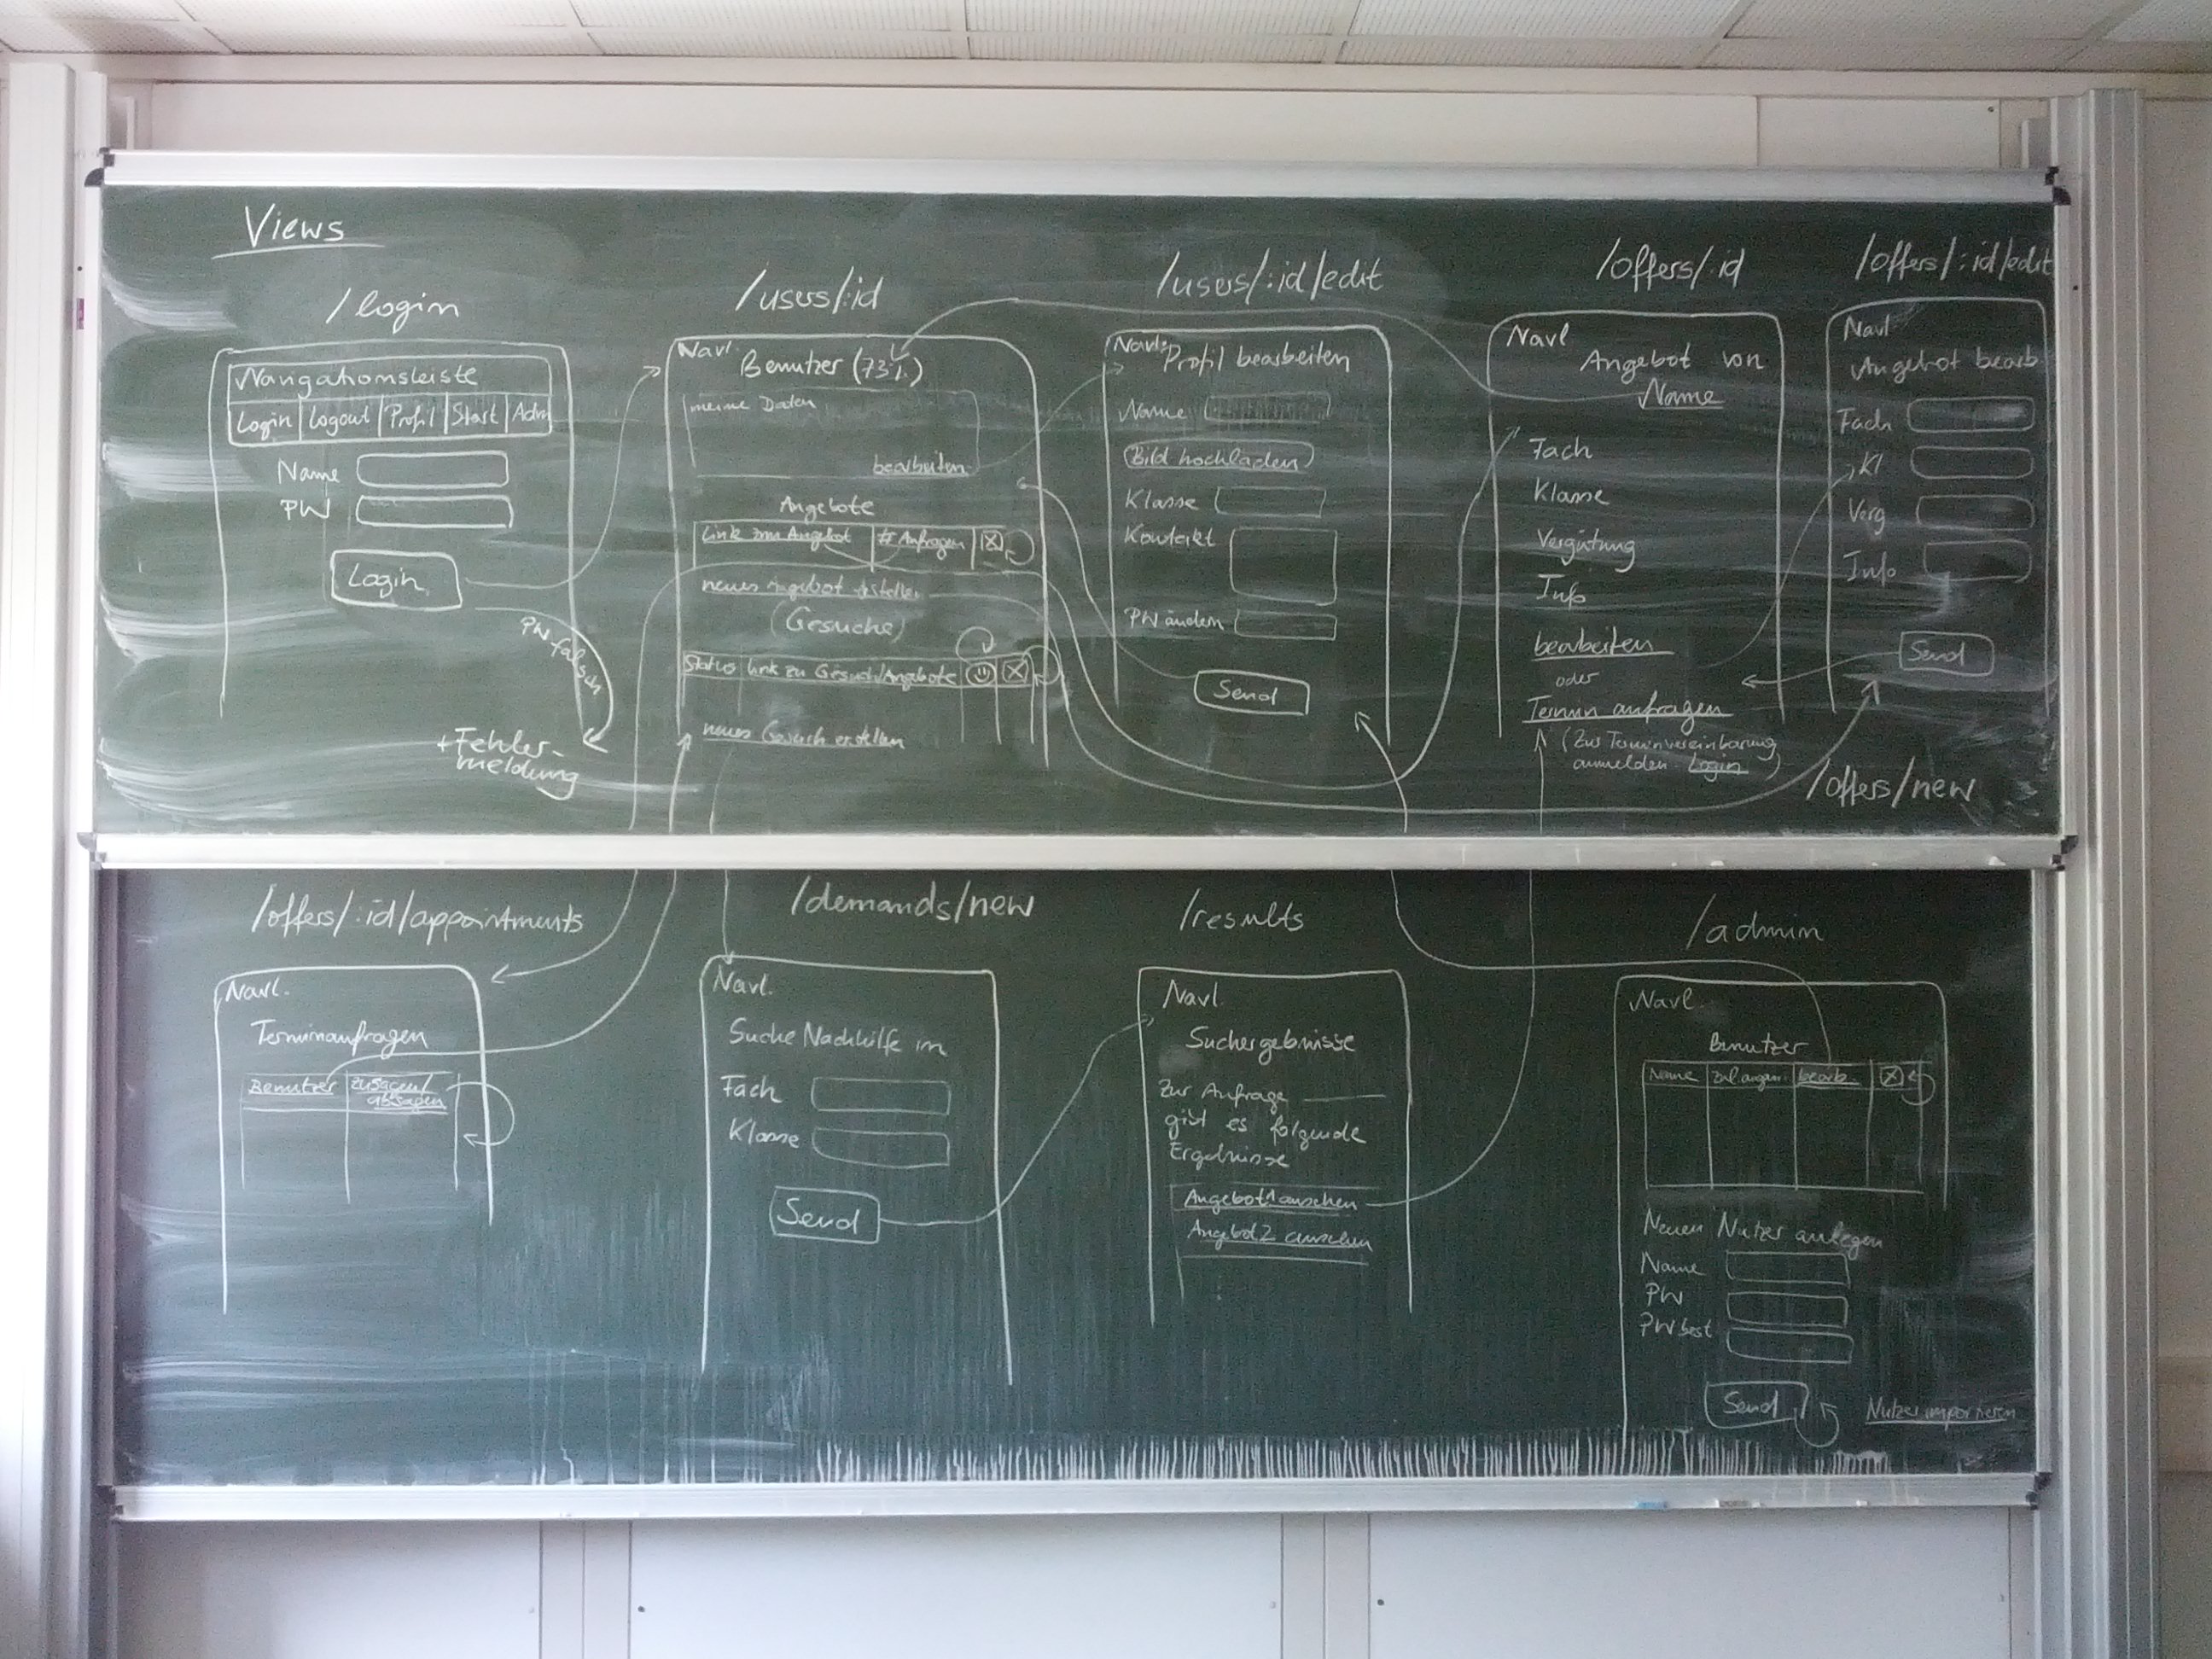 Views
/login
Navigationsleiste
Login Logout Profil Start Adm
Name
PW
Login
PW falsch
+Fehler-
meldung
/users/:id
Navl.
Benutzer (73%)
meine Daten
bearbeiten
Angebote
Link zum Angebot # Anfragen X
neues Angebot erstellen
(Gesuche)
Status Link zu Gesuch/Angebote X
neues Gesuch erstellen
/users/:id/edit
Navl.
Profil bearbeiten
Name
Bild hochladen
Klasse
Kontakt
PW ändern
Send
/offers/:id
Navl
Angebot von
Name
Fach
Klasse
Vergütung
Info
bearbeiten
oder
Termin anfragen
(Zur Terminvereinbarung
anmelden Login)
/offers/:id/edit
Navl
Angebot bearb
Fach
Kl
Verg
Info
Send
/offers/new
/offers/:id/appointments
Navl.
Terminanfragen
Benutzer zusagen/
absagen
/demands/new
Navl.
Suche Nachhilfe in
Fach
Klasse
Send
/results
Navl.
Suchergebnisse
Zur Anfrage
gibt es folgende
Ergebnisse
Angebot 1 ansehen
Angebot 2 ansehen
/admin
Navl.
Benutzer
Name bearb. X
Neuen Nutzer anlegen
Name
PW
PW best
Send
Nutzer importieren